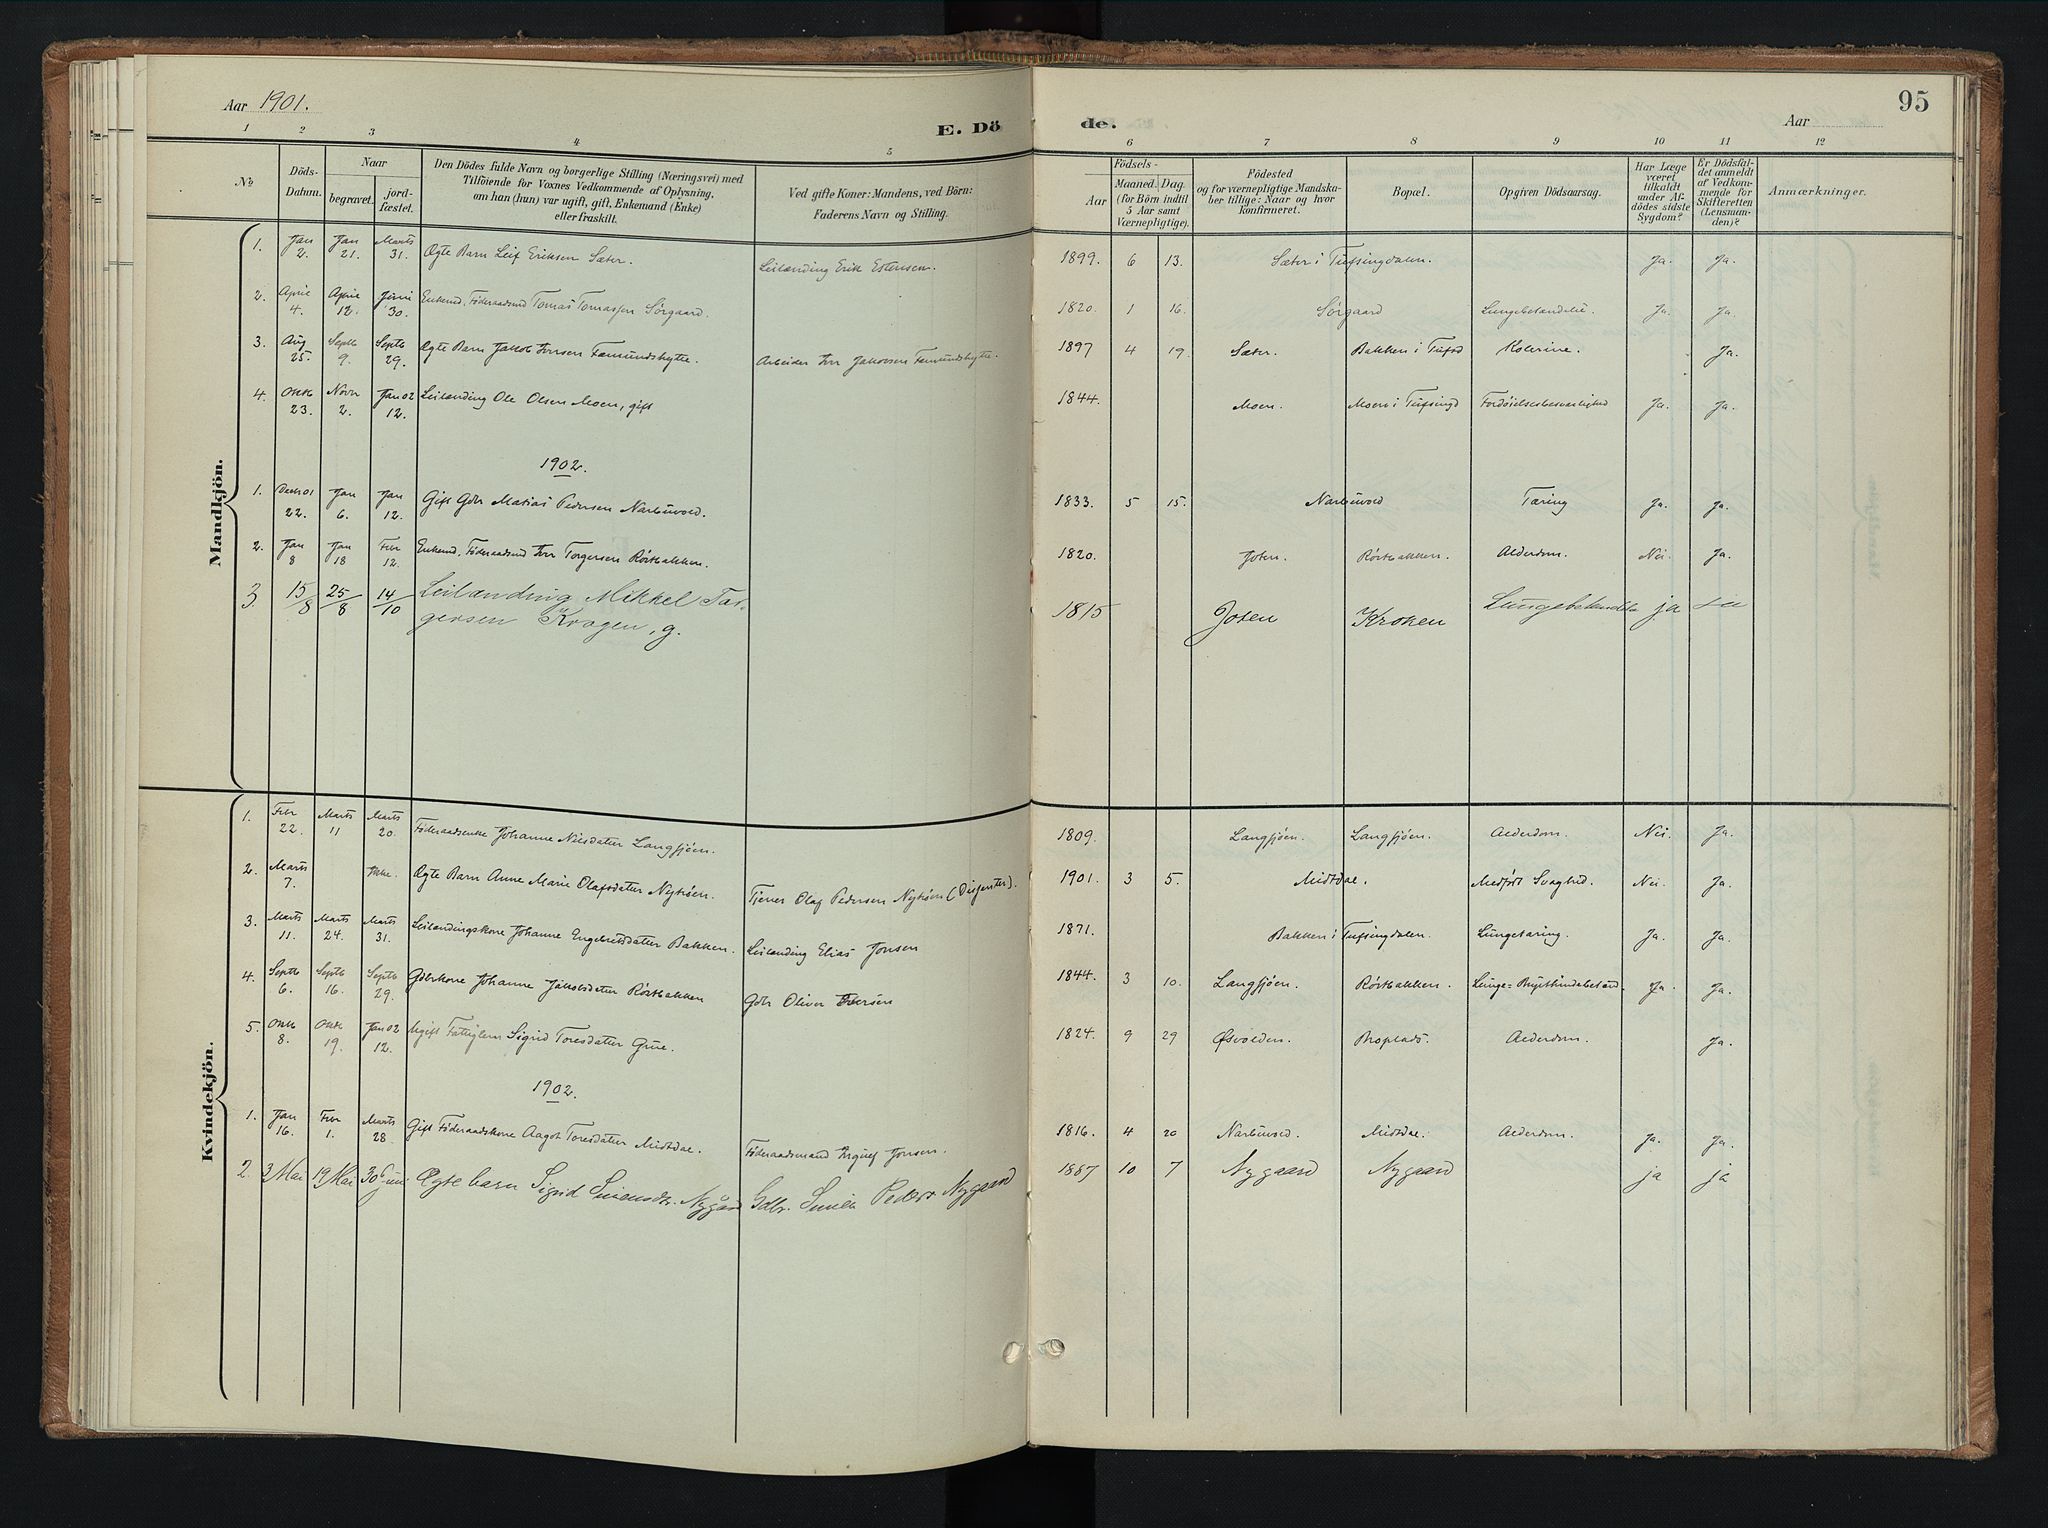 Aar 1901.
E. Dö
de.
Aar
95
1 2 3 4 5 6 7 8 9 10 11 12
No
Döds-Datum.
Naar
begravet.
jord-fæstet.
Den Dödes fulde Navn og borgerlige Stilling (Næringsvei) med
Tilföiende for Voxnes Vedkommende af Oplysning,
om han (hun) var ugift, gift, Enkemand (Enke)
eller fraskilt.
Ved gifte Koner: Mandens, ved Börn:
Faderens Navn og Stilling.
Födsels-
Aar
Maaned. Dag.
(for Börn indtil
5 Aar samt
Værnepligtige).
Födested
og for værnepligtige Mandska-
ber tillige: Naar og hvor
konfirmeret.
Bopæl.
Opgiven Dödsaarsag.
Har Læge
været
tilkaldt
under Af-
dödes sidste
Sygdom?
Er Dödsfal-
det anmeldt
af Vedkom-
mende for
Skifteretten
(Lensman-
den)?
Anmærkninger.
Mandkjön.
1. Jan 2. Jan 21. Marts 31. Ægte Barn Leif Eriksen Sæter. Leilænding Erik Estensen. 1899. 6 13. Sæter i Tufsingdalen. Ja. Ja.
2. April 4. April 12. Juni 30. Enkemd. Föderaadsmd Tomas Tomassen Sörgaard. 1820. 1 16. Sörgaard Lungebetændelse. Ja. Ja.
3. Aug 25. Septb 9. Septb 29. Ægte Barn Jakob Iversen Fæmundshytte. Arbeider Iver Jakobsen Fæmundshytte. 1897 4 19. Sæter. Bakken i Tufsd Kolerine. Ja.
4. Oktb 23. Novbr 2. Jan 02 12. Leilænding Ole Olsen Moen, gift 1844. Moen. Moen i Tufsingd Fordöielsesbesværlighed Ja. Ja.
1902.
1. Decb 01 22. Jan 6. Jan 12. Gift Gdbr Matias Pedersen Narbuvold. 1833. 5 15. Narbuvold Tæring Ja. Ja.
2. Jan 8 Jan 18 Febr 12. Enkemd. Föderaadsmd Iver Torgersen Röstbakken. 1820. Joten. Röstbakken. Alderdom. Nei. Ja.
3. 15/8 25/8 14/10 Leilænding Mikkel Tor-
gersen Krogen, g. 1815 Joten Kroken Lungebetændelse ja ja
Kvindekjön.
1. Febr 22. Marts 11 Marts 20. Föderaadsenke Johanne Nilsdatter Langsjöen. 1809. Langsjöen. Langsjöen. Alderdom. Nei. Ja.
2. Marts 7. Ikke. Ægte Barn Anne Marie Olafsdatter Nyhöen. Tjener Olaf Pedersen Nyhöen (Disjenter). 1901. 3 5. Midtdal. Medfödt Svaghed. Nei. Ja.
3. Marts 11. Marts 24. Marts 31. Leilændingskone Johanne Engebretsdatter Bakken. Leilænding Elias Jonsen 1871. Bakken i Tufsingdalen. Lungetæring. Ja. Ja.
4. Septb 6. Septb 16. Septb 29. Gdbrkone Johanne Jakobsdatter Röstbakken Gdbr Oliver Iversen 1844. 3 10. Langsjöen. Röstbakken. Lunge- Brysthindebetænd. Ja. Ja.
5. Oktb 8. Oktb 19. Jan 02 12. Ugift Fattiglem Sigrid Toresdatter Grue. 1824. 9 29 Øsvolden. Moplads. Alderdom. Ja.
1902.
1. Jan 16. Febr 1. Marts 28. Gift Föderaadskone Aagot Toresdatter Midtdal. Föderaadsmand Ingulf Jonsen. 1816. 4 20 Narbuvold. Midtdal. Alderdom. Ja. Ja.
2. 3 Mai 19 Mai 30 Juni Ægte barn Sigrid Simensdtr. Nygård Gdbr. Simen Peders. Nygaard 1887 10 7 Nygaard Nygaard ja ja